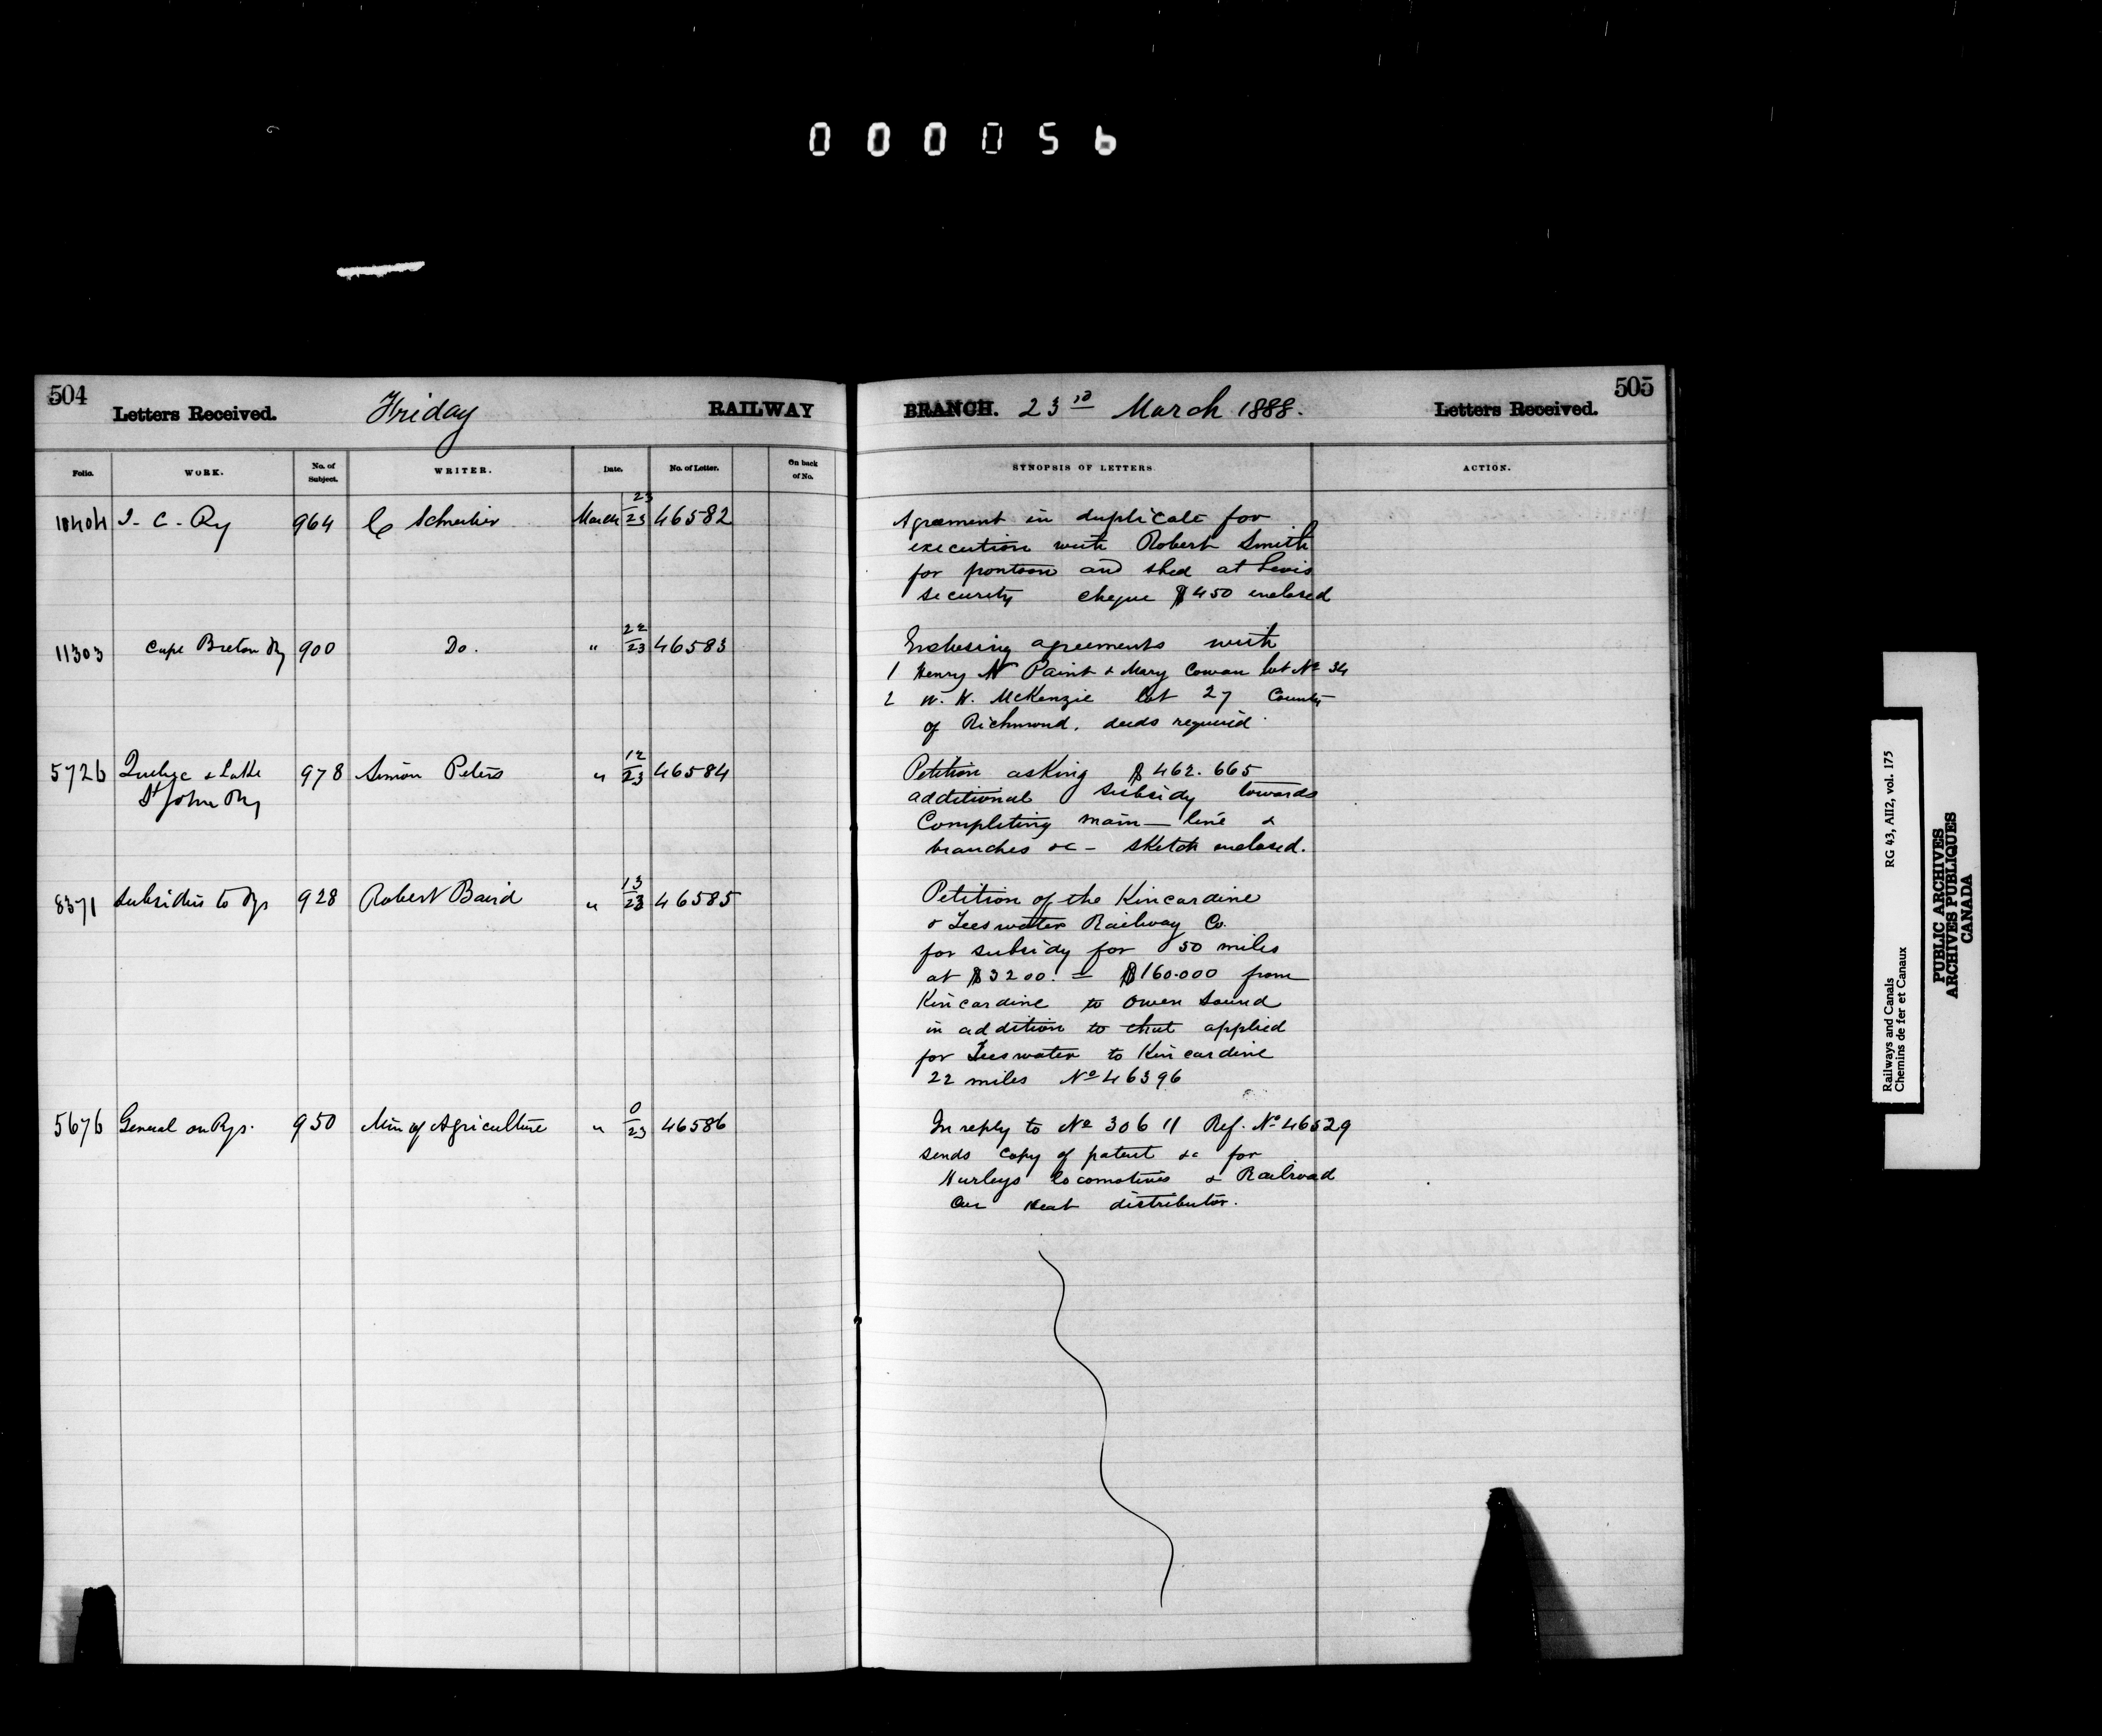 000056
504
Letters Received.
Friday
RAILWAY
BRANCH. 23rd March 1888.
Letters Received.
505
Folio.
WORK.
No. of Subject.
WRITER.
Date.
No. of Letter.
On back of No.
SYNOPSIS OF LETTERS
ACTION.
10404 I. C. Ry 964 C Schreiber March 23/23 46582
Agreement in duplicate for
execution with Robert Smith
for pontoon and shed at Levis
security cheque $450 enclosed
11303 Cape Breton Ry 900 Do. " 22/23 46583
Enclosing agreements with
1 Henry N Paint & Mary Cowan lot No 34
2 W. H. McKenzie lot 27 County
of Richmond. deeds required
5726 Quebec & Lake 978 Simon Peters " 12/23 46584
St John Ry
Petition asking $462.665
additional subsidy towards
Completing main line &
branches &c - sketch enclosed.
8371 Subsidies to Rys 928 Robert Baird " 13/23 46585
Petition of the Kincardine
& Teeswater Railway Co.
for subsidy for 50 miles
at $3200. = $160.000 from
Kincardine to Owen Sound
in addition to that applied
for Teeswater to Kincardine
22 miles No 46396
5676 General on Rys. 950 Min of Agriculture " 0/23 46586
In reply to No 30611 Ref. No 46529
sends copy of patent &c for
Hurleys locomotives & Railroad
Car Heat distributor.
Railways and Canals RG 43, AII2, vol. 175
Chemins de fer et Canaux
PUBLIC ARCHIVES
ARCHIVES PUBLIQUES
CANADA